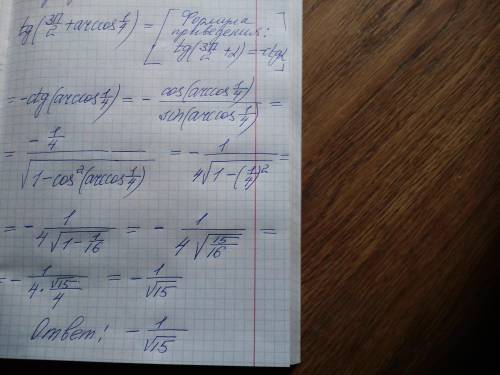 tg(3π/2 + arccos 1/4) = [Формула
приведения:
tg(3π/2 + α) = -ctgα]
= -ctg(arccos 1/4) = - cos(arccos 1/4)/sin(arccos 1/4) =
= (-1/4)/√(1-cos²(arccos 1/4)) = - 1/(4√(1-(1/4)²)) =
= - 1/(4√(1-1/16)) = - 1/(4√(15/16)) =
= - 1/(4·√15/4) = - 1/√15
Ответ: - 1/√15